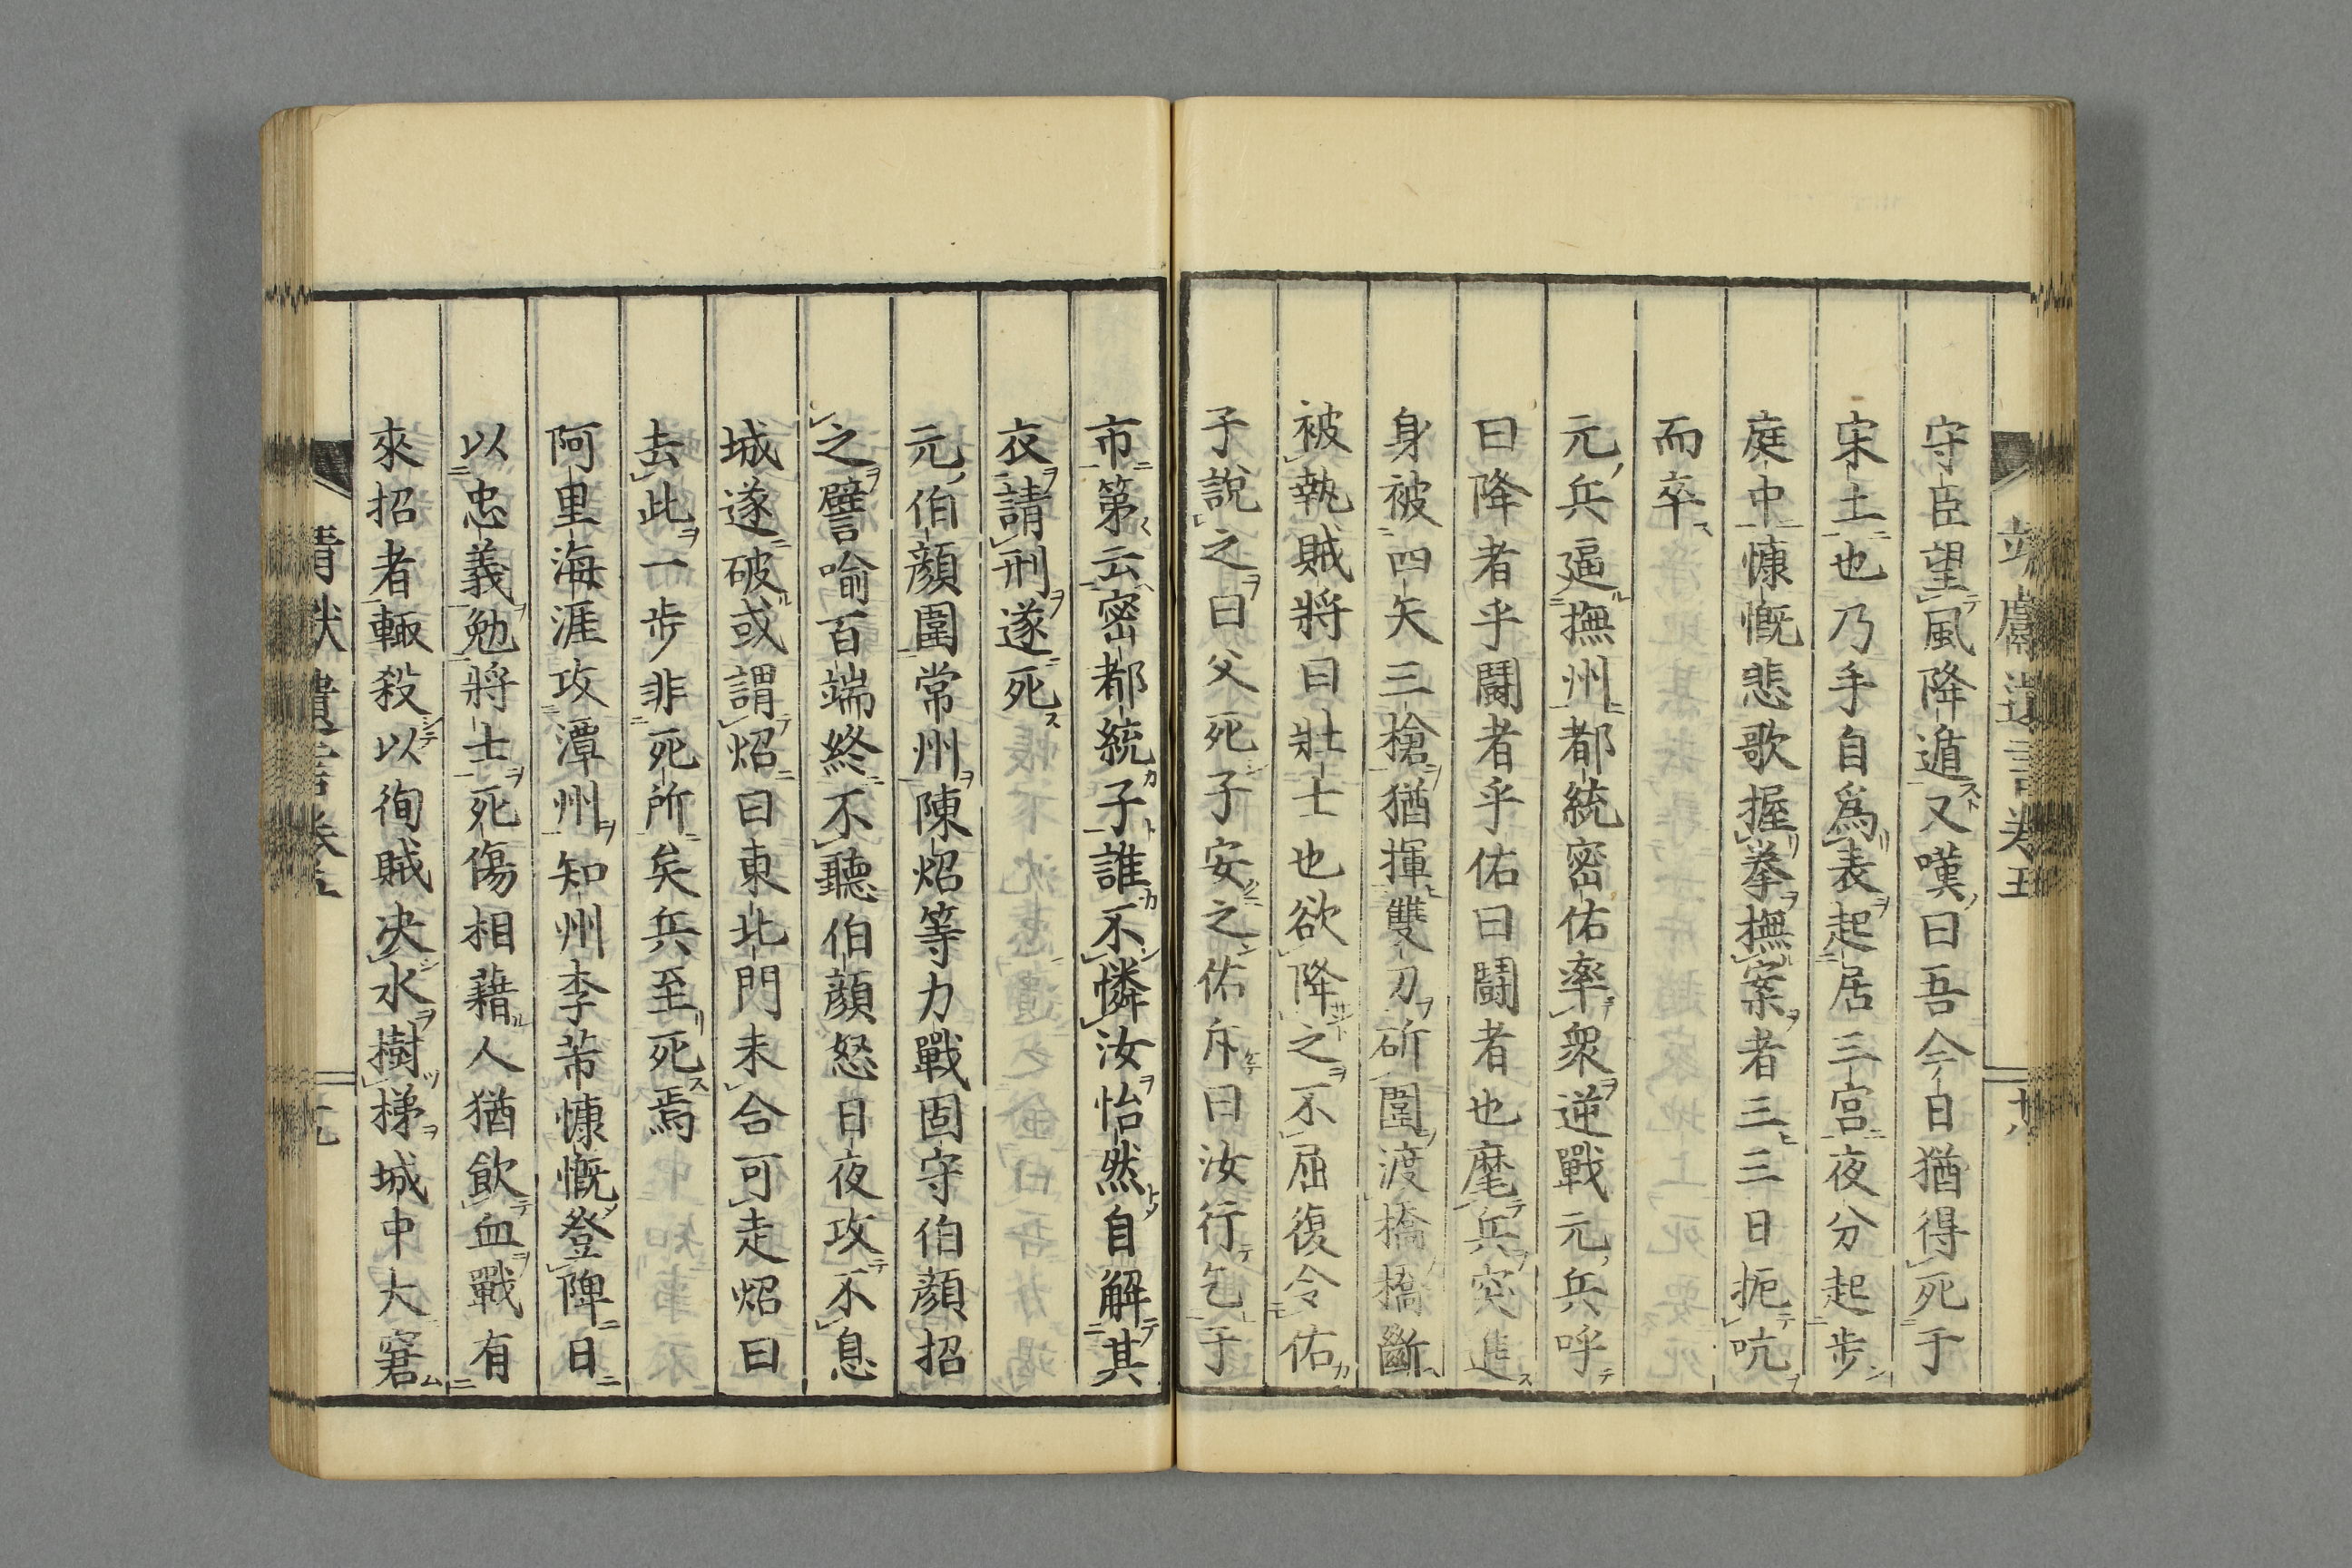 守臣望風降遁又嘆曰吾今日猶得死于
宋土也乃手自爲表起居三宮夜分起步
庭中慷慨悲歌握拳撫案者三三日扼吭
而卒
元兵逼撫州都統密佑率衆逆戰元兵呼
曰降者乎鬪者乎佑曰鬪者也麾兵突進
身被四矢三槍猶揮雙刀斫圍渡橋橋斷
被執賊將曰壯士也欲降之不屈復令佑
子說之曰父死子安之佑斥曰汝行乞于
市第云密都統子誰不憐汝怡然自解其
衣請刑遂死
元伯顏圍常州陳炤等力戰固守伯顏招
之譬喻百端終不聽伯顏怒日夜攻不息
城遂破或謂炤曰東北門未合可走炤曰
去此一步非死所矣兵至死焉
阿里海涯攻潭州知州李芾慷慨登陴日
以忠義勉將士死傷相藉人猶飲血戰有
來招者輙殺以徇賊决水樹梯城中大窘